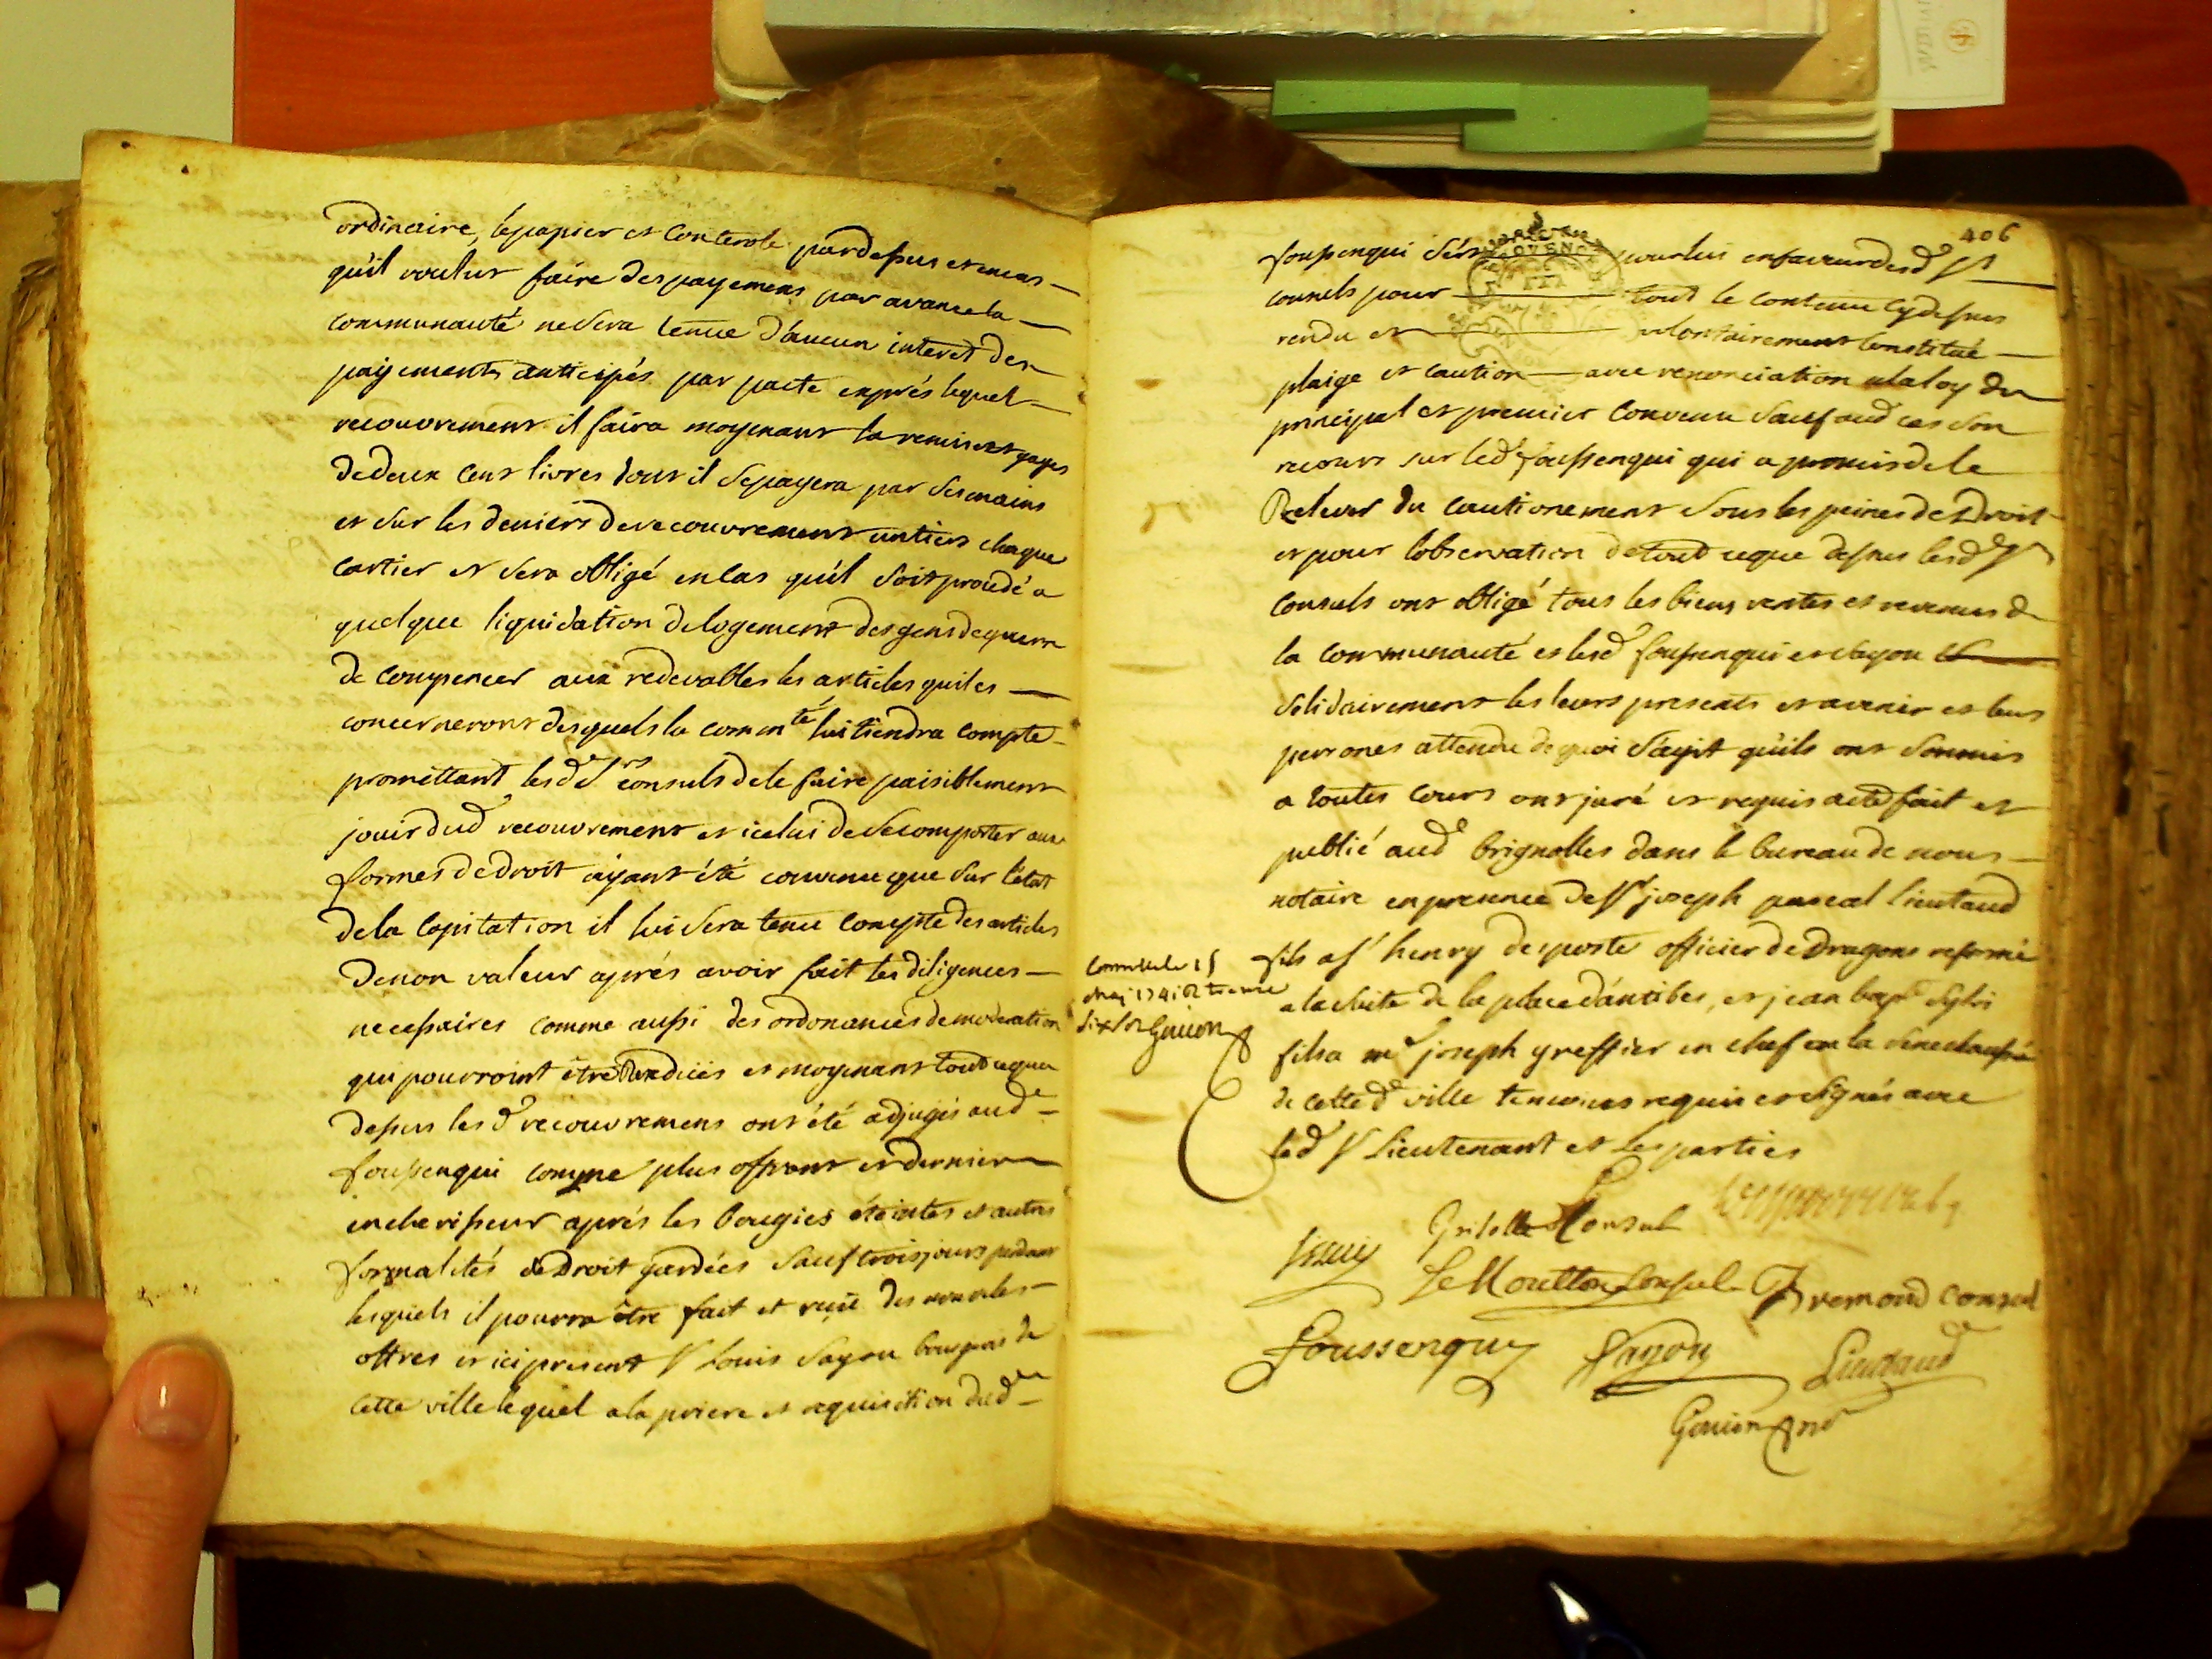 ordinaire, le papier et Conterole pardessus et en cas
qu'il voulut faire des payemens par avance la
communauté ne sera tenue d'aucun interet des
payements anticipés par pacte exprés lequel
recouvrement il faira moyenant la remise et gages
de deux cent livres dont il se payera par ses mains
et sur les deniers de recouvrement un tiers chaque
cartier et sera obligé en cas qu'il soit procédé a
quelque liquidation de logement des gens de guerre
de compencer aux redevables les articles qui les
concerneront desquels la comm.té lui tiendra compte
promettant lesd. srs consuls de le faire paisiblement
jouir dud recouvrement et icelui de se comporter aux
formes de droit ayant été convenu que sur l'état
de la Capitation il lui sera tenu compte des articles
de non valeur aprés avoir fait les diligences
necessaires comme aussi des ordonances de moderation
qui pourroint être Rendües et moyenant tout ce que
dessus les d recouvremens ont été adjugés aud
foussenqui comme plus offrant et dernier
encherisseur aprés les Bougies éteintes et autres
formalités de Droit gardées sauf trois jours pendant
lesquels il pourra être fait et reçüe des nouvelles
offres et ici present Sr Louis Sayou bourgeois de
cette ville lequel a la priere et requisition dud
406
foussenqui pour lui en faveur desd Srs
consuls pour tout le contenu cy dessus
rendu et volontairement Constitué
plaige et caution avec renonciation a la loy du
principal et premier Convenu sauf aud cas son
recours sur led foussenqui qui a promis de le
Relever du cautionement sous les peines de Droit
et pour l'observation de tout ce que dessus lesd Srs
Consuls ont obligé tous les biens rentes et revenus de
la communauté et lesd foussenqui et Sayou
solidairement les leurs presents et avenir et leurs
persones attendu de quoi s'agit qu'ils ont soumis
a toutes Cours ont juré et requis acte fait et
publié aud Brignolles dans le bureau de nous
notaire en presence de Sr joseph pascal Lieutaud
fils a Sr henry de poste officier de Dragons reformé
a la suite de la place d'antibes, et jean bapt.
fils a me joseph greffier en chef en la senechaussée
de cette d ville temoins requis et signés avec
led Sr Lieutenant et les parties
Controlé 15
may 1741
Gouion
Consul
Le Moutton Consul
Bremond Consul
Foussenquy
Sayou
Lieutaud
Gouion Not